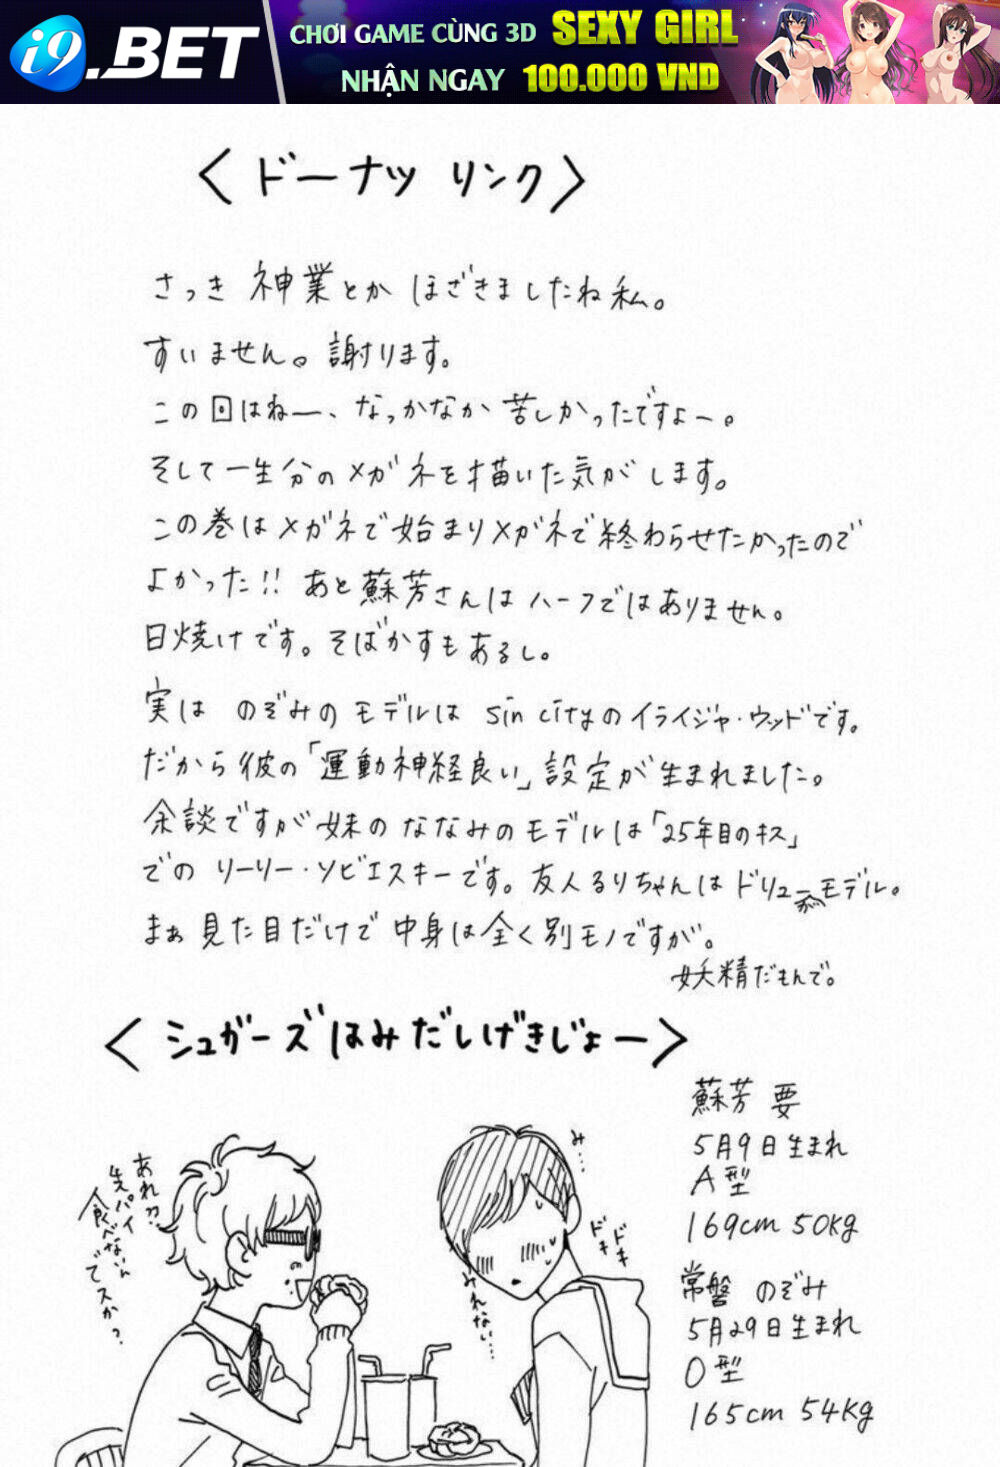 i9.BET
CHƠI GAME CÙNG 3D SEXY GIRL
NHẬN NGAY 100.000 VND
<ドーナツ リンク>
さっき 神業とか ほざきましたね私。
すいません。謝ります。
この回はねー、なっかなか 苦しかったですよー。
そして一生分のメガネを描いた気がします。
この巻はメガネで始まりメガネで終わらせたかったので
よかった!! あと蘇芳さんはハーフではありません。
日焼けです。そばかすもあるし。
実は のぞみのモデルは sin cityのイライジャ・ウッドです。
だから彼の「運動神経良い」設定が生まれました。
余談ですが妹のななみのモデルは「25年目のキス」
でのリーリー・ソビエスキーです。友人るりちゃんはドリューがモデル。
まぁ見た目だけで中身は全く別モノですが。
妖精だもんで。
<シュガーズはみだしげきじょー>
蘇芳 要
5月9日生まれ
A型
169cm 50kg
常盤 のぞみ
5月29日生まれ
O型
165cm 54kg
あれ??
先パイ
食べないん
でスか?
み…
ドキ
ドキ
みれない…